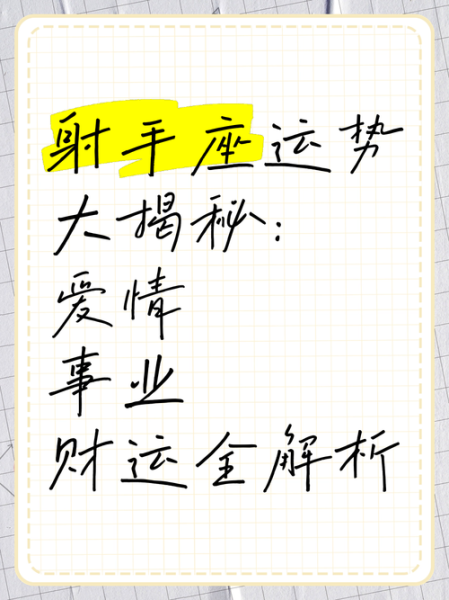 射手座运势
大揭秘：
爱情
事业
财运全解析